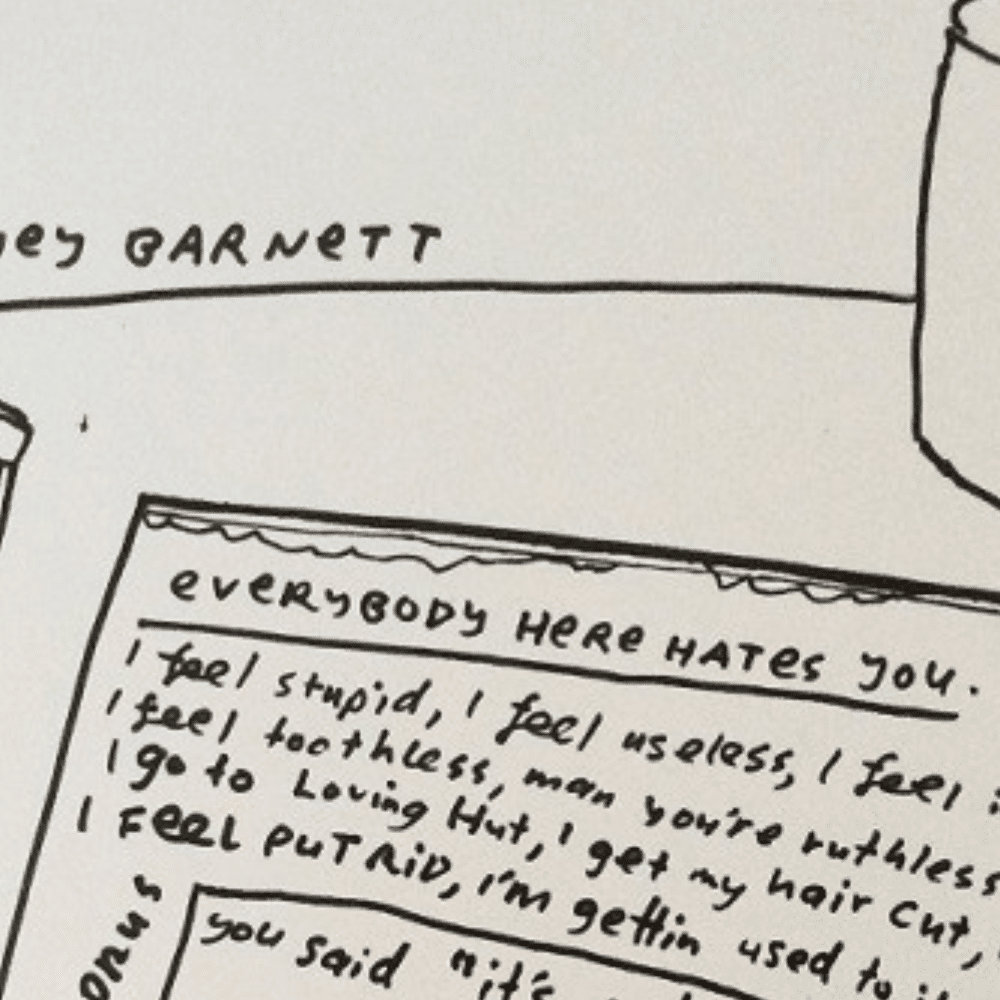 ey BARNETT
everybody here hates you.
I feel stupid, I feel useless, I feel
I feel toothless, man you're ruthless
I go to Loving Hut, I get my hair cut,
I FEEL PUTRID, I'm gettin used to
onus
you said "it's